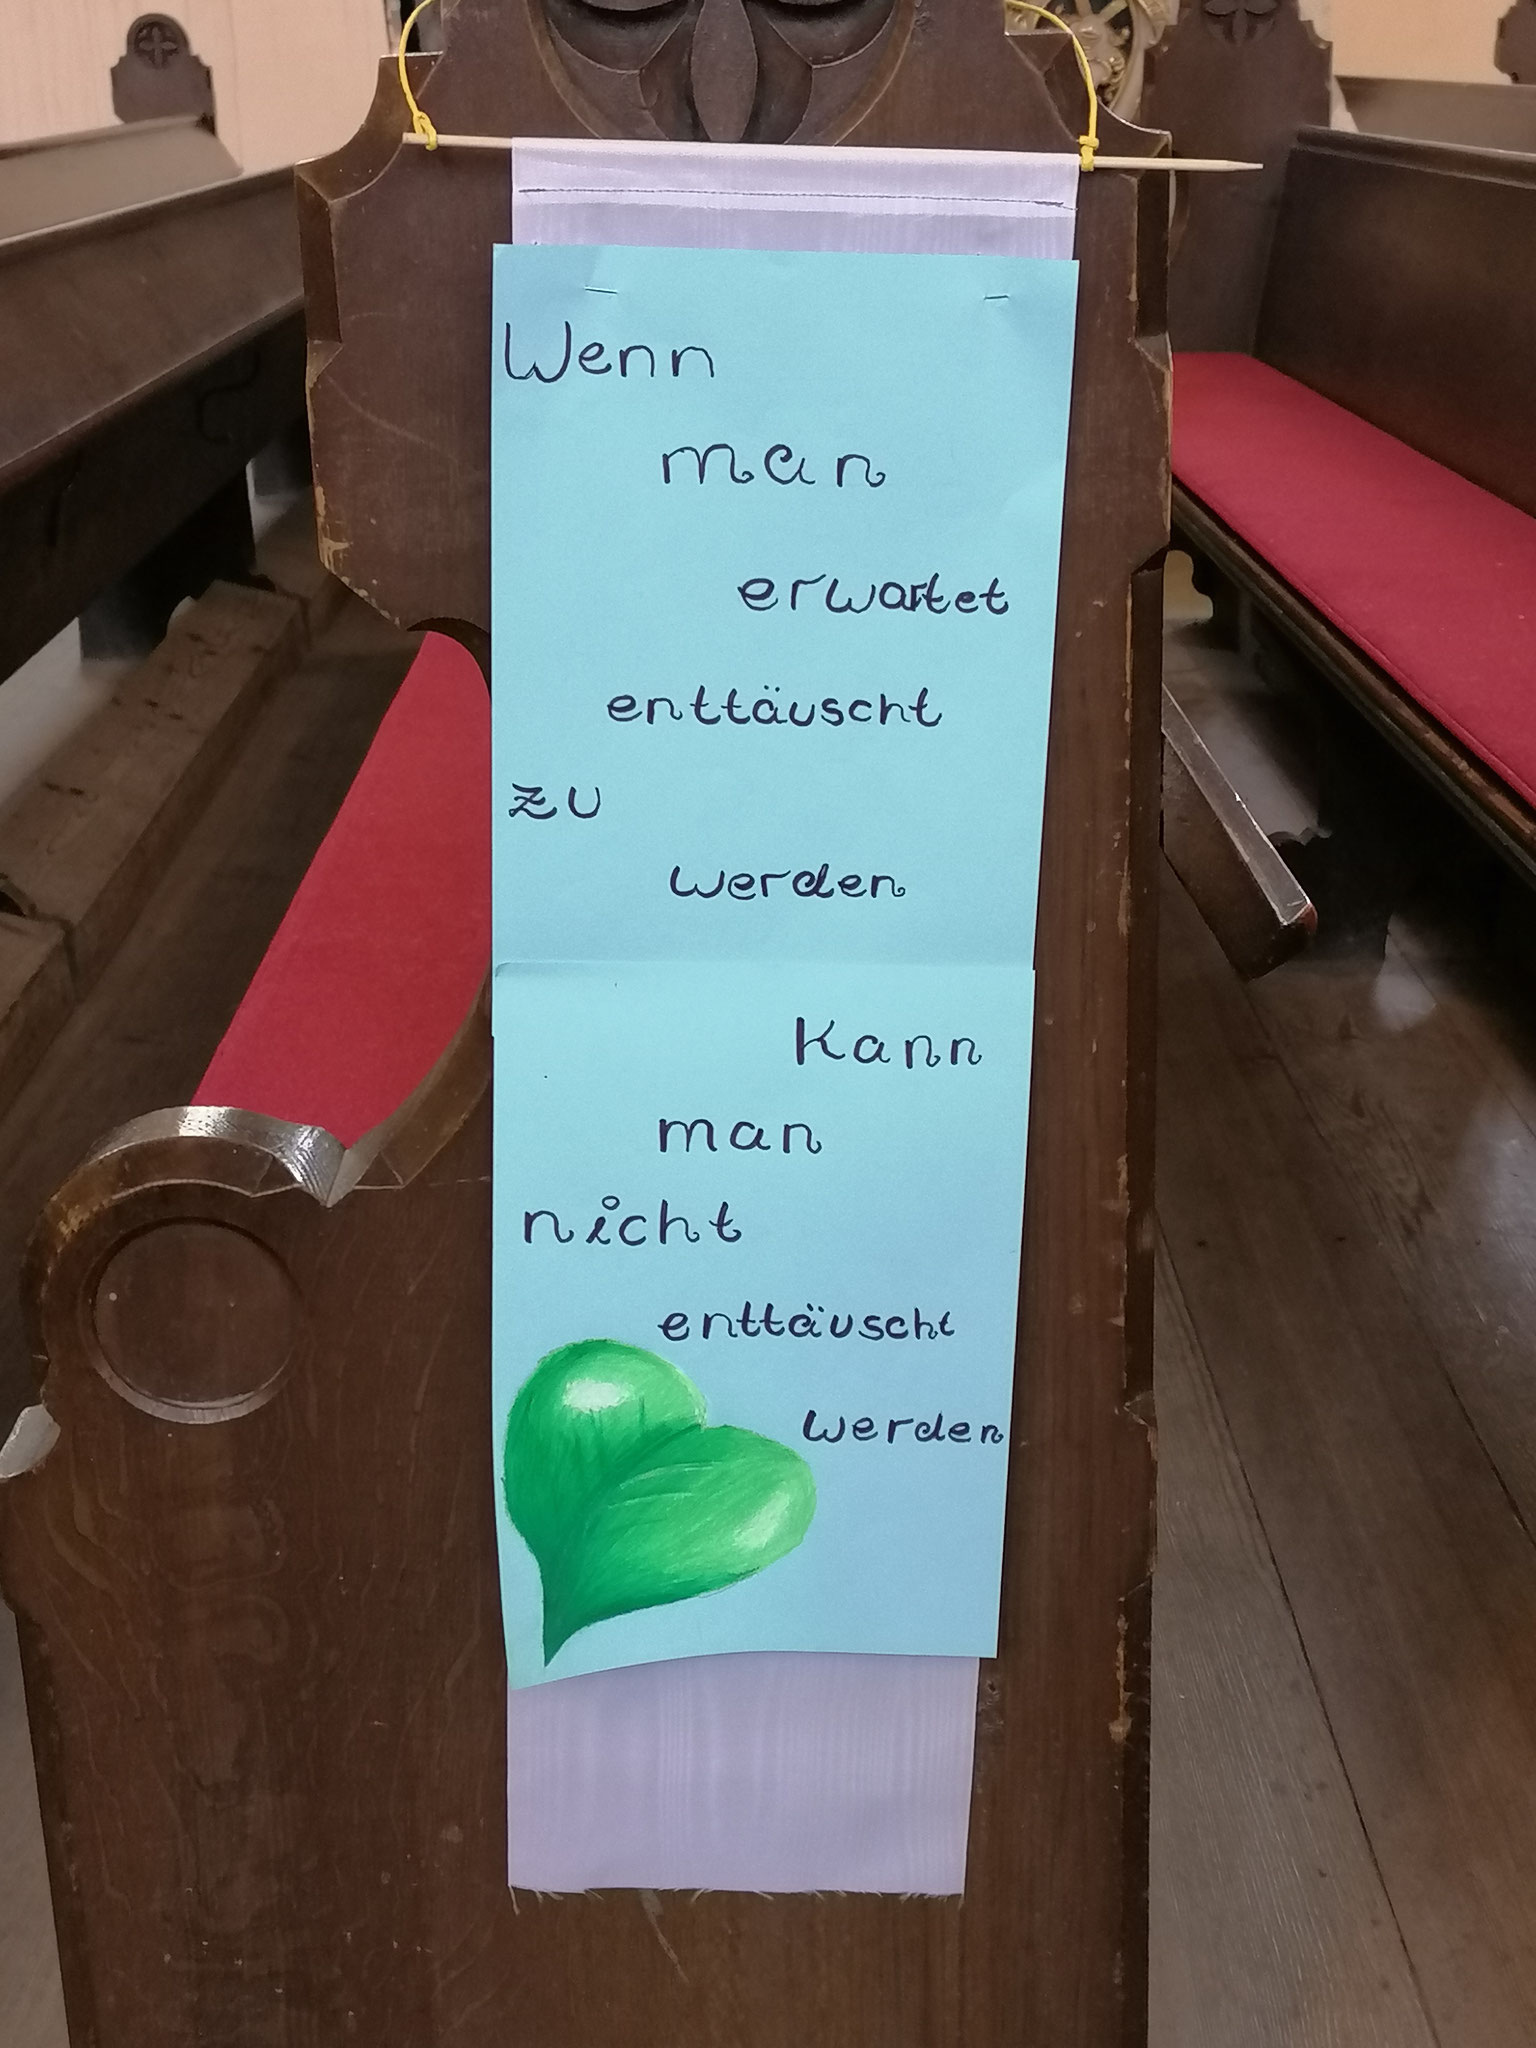 Wenn
man
erwartet
enttäuscht
zu
werden
Kann
man
nicht
enttäuscht
werden